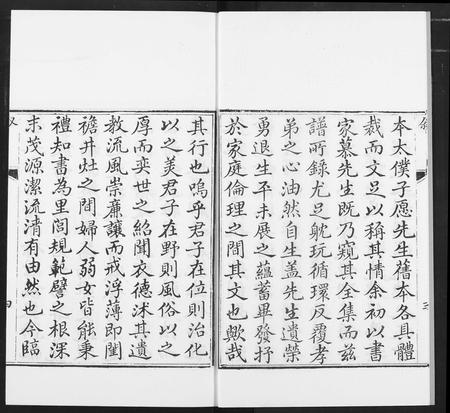 本太僕子愿先生舊本各具體
裁而文足以稱其情余初以書
家慕先生既乃窺其全集而兹
譜所錄尤足躭玩循環反覆孝
弟之心油然自生盖先生遺榮
勇退生平未展之蘊蓄畢發抒
於家庭倫理之間其文也歟哉
其行也嗚乎君子在位則治化
以之美君子在野則風俗以之
厚而奕世之紹聞衣德沐其遺
教流風崇廉讓而戒浮薄即閨
襜井灶之間婦人弱女皆能秉
禮知書為里閭規範譬之根深
末茂源潔流清有由然也今臨